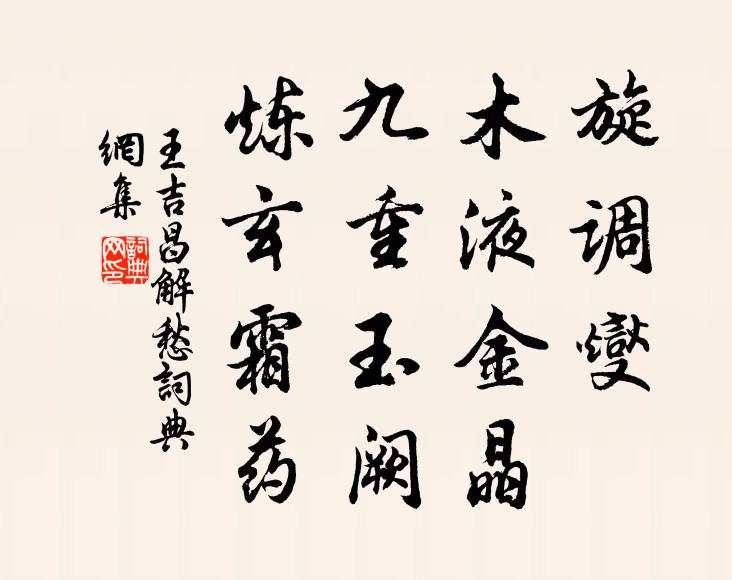 旋调燮
木液金晶
九重玉阙
炼玄霜药
王吉昌解愁詞典
網集
詞典網印